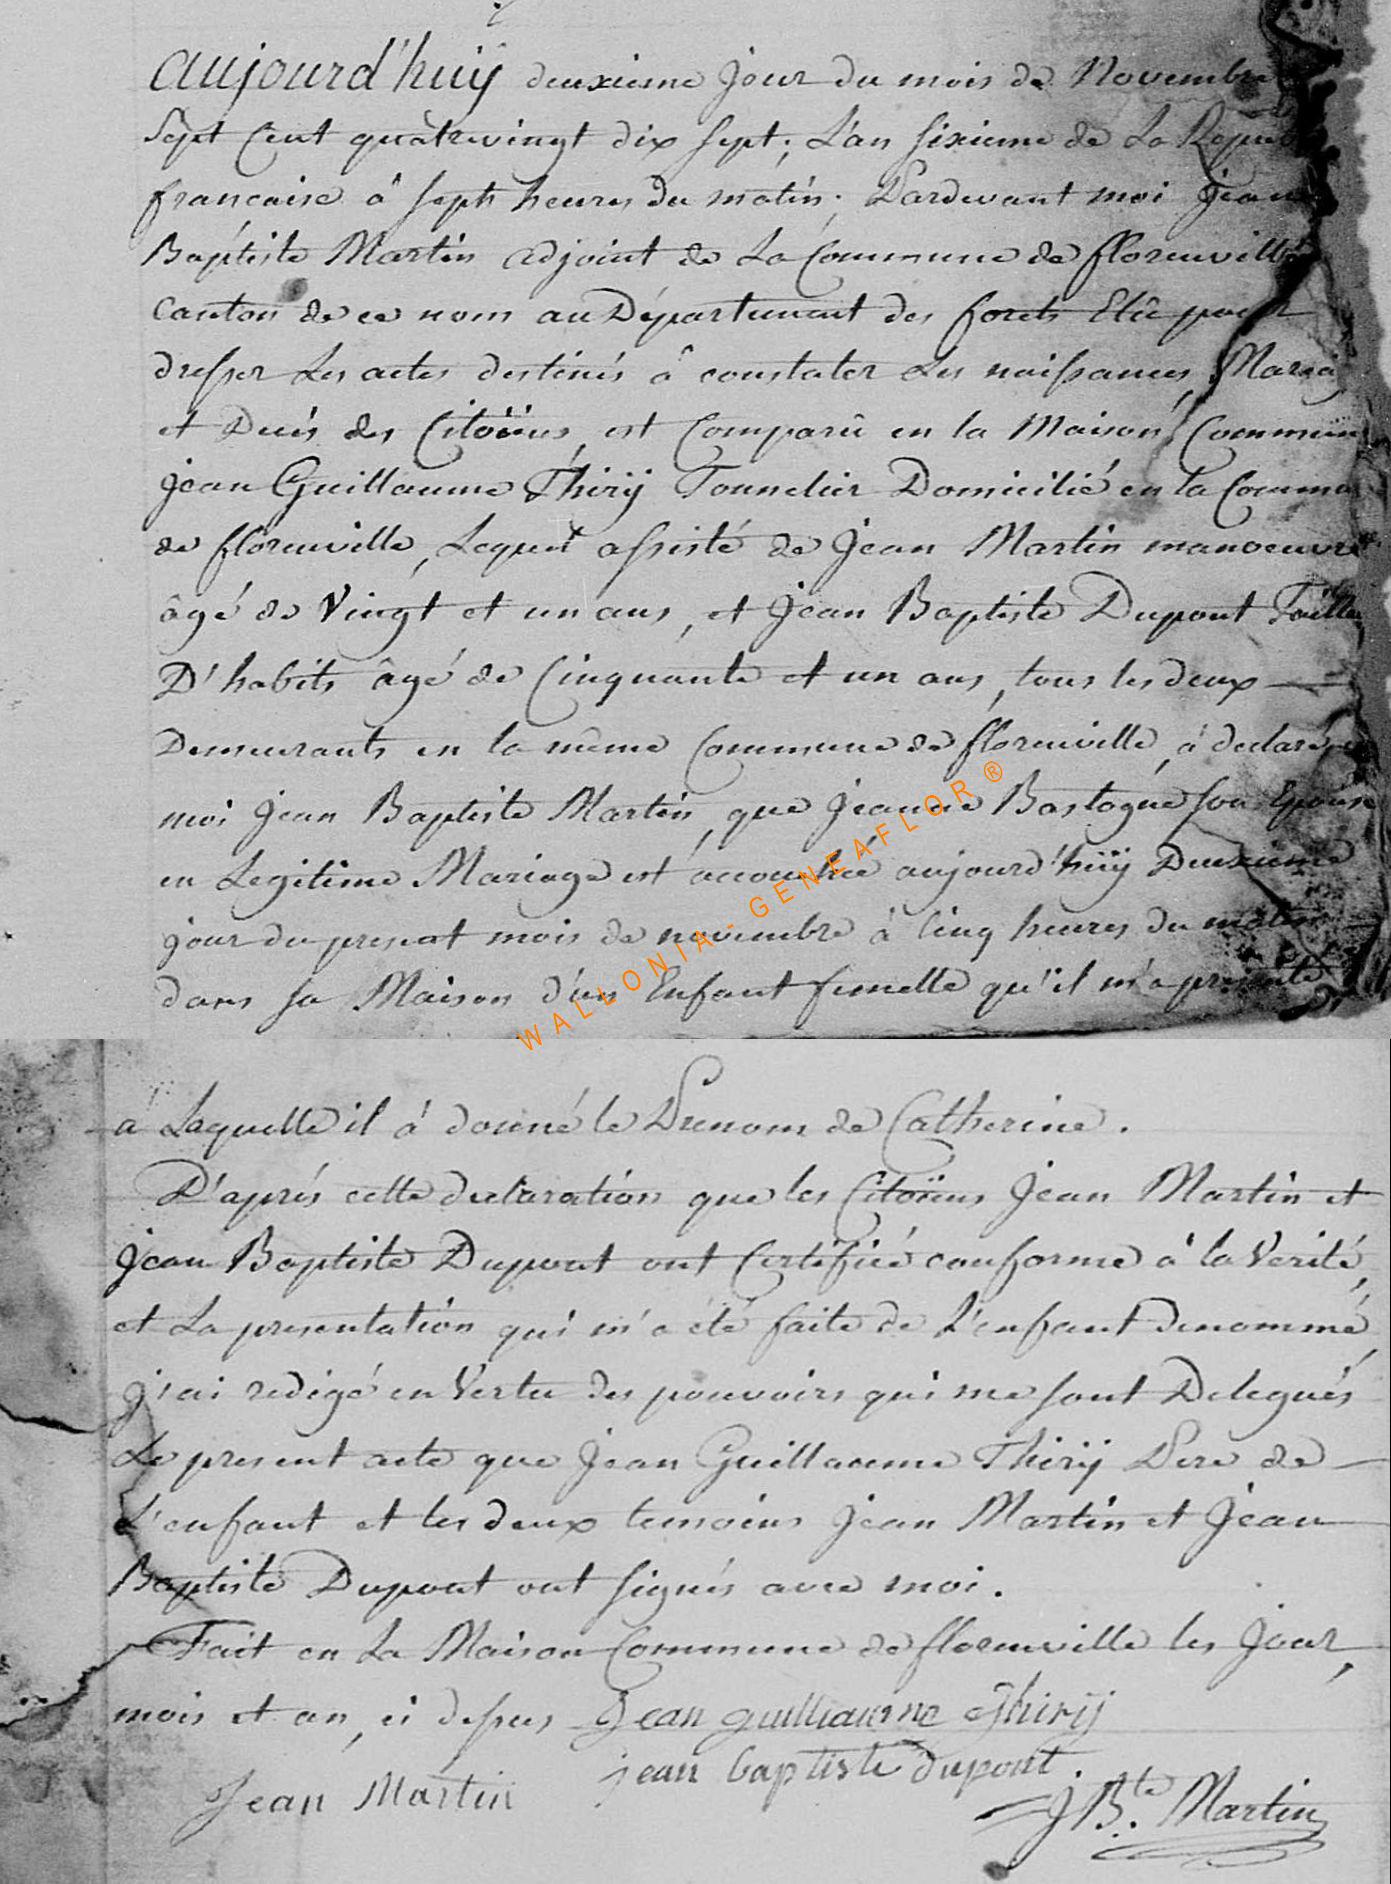 aujourd'huÿ deuxieme jour du mois de Novembre
Sept Cent quâtrevingt dix sept; L'an sixieme de La Repub
francaise â sept heures du matin; Pardevant moi Jean
Baptiste Martin adjoint de La Commune de florenville
Canton de ce nom au Département des forets Elû pour
dresser Les actes destinés â constater Les naissances, Maria
et Decés des Citoïens, est Comparû en la Maison Commune
Jean Guillaume Thirÿ Tonnelier Domicilié en la Commu
de florenville, Lequel assisté de Jean Martin manoeuvre
âgé de Vingt et un ans, et Jean Baptiste Dupont Taille
D'habits âgé de Cinquante et un ans, tous les deux
Demeurants en la même Commune de florenville, á declaré
moi Jean Baptiste Martin, que Jeanne Bastogne son Epouse
en Legitime Mariage est accouchée aujourd'hüÿ Deuxieme
jour du present mois de novembre à Cinq heures du matin
dans sa Maison d'un Enfant femelle qu'il m'a presenté
WALLONIA-GENEAFLOR®
a Laquelle il á donné le Prenom de Catherine.
D'aprés cette declaration que les Citoïens Jean Martin et
Jean Baptiste Dupont ont Certifié conforme á la Verité,
et La presentation qui m'a été faite de L'enfant Denommé,
J'ai redigé en Vertu des pouvoirs qui me sont Delegués
Le present acte que Jean Guillaume Thirÿ Pere de
L'enfant et les deux temoins Jean Martin et Jean
Baptiste Dupont ont signés avec moi.
Fait en La Maison Commune de florenville les Jour,
mois et an, ci dessus Jean guilliaume Thirÿ
jean baptiste dupont.
Jean Martin
J Bte. Martin